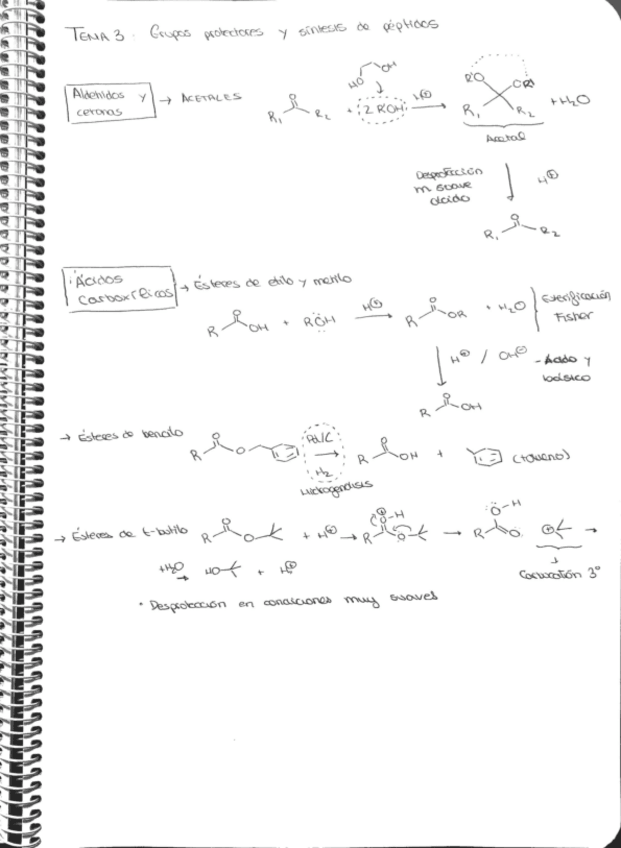 TEMA 3: Grupos protectores y síntesis de péptidos
HO OH
Aldehidos y cetonas → ACETALES
R₁ O R₂ + 2 ROH H⊕ R'O OR' R₁ R₂ + H₂O
Acetal
Desprotección
m. suave
ácido
H⊕
R₁ O R₂
Ácidos carboxílicos → Ésteres de etilo y metilo
R O OH + RÖH H⊕ R O OR + H₂O
Esterificación
Fisher
H⊕ / OH⊖ - Ácido y
básico
R O OH
→ Ésteres de bencilo R O O Pd/C H₂ R O OH + (tolueno)
Hidrogenólisis
→ Ésteres de t-butilo R O O + H⊕ → R O-H O → R O-H O ⊕ →
Carbocatión 3º
+H₂O → HO + H⊕
* Desprotección en condiciones muy suaves